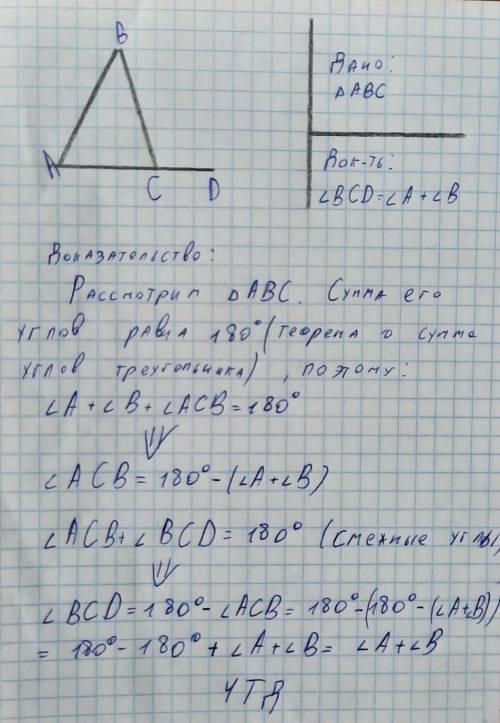 B
A
C
D
Дано:
△ABC
Док-ть:
∠BCD=∠A+∠B
Доказательство:
Рассмотрим △ABC. Сумма его
углов равна 180° (теорема о сумма
углов треугольника), поэтому:
∠A+∠B+∠ACB=180°
⇓
∠ACB=180°-(∠A+∠B)
∠ACB+∠BCD=180° (смежные углы)
⇓
∠BCD=180°-∠ACB=180°-(180°-(∠A+∠B))
= 180°-180°+∠A+∠B= ∠A+∠B
ЧТД